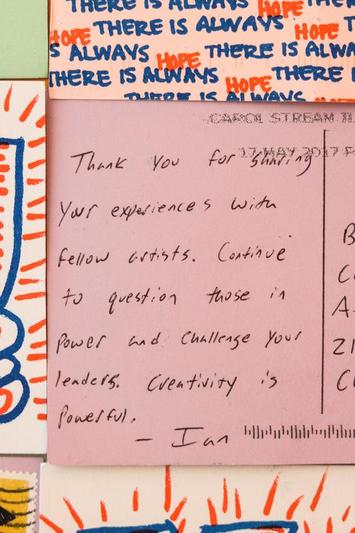 THERE IS ALWAYS HOPE THERE
HOPE THERE IS ALWAYS HOPE
S ALWAYS HOPE THERE IS ALWA
THERE IS ALWAYS HOPE THERE I
THERE IS ALWAYS
CAROL STREAM IL
17 MAY 2017 P
Thank you for sharing
Your experiences with
fellow artists. Continue
to question those in
power and challenge your
leaders. Creativity is
powerful.
- Ian
B
C
A
21
C